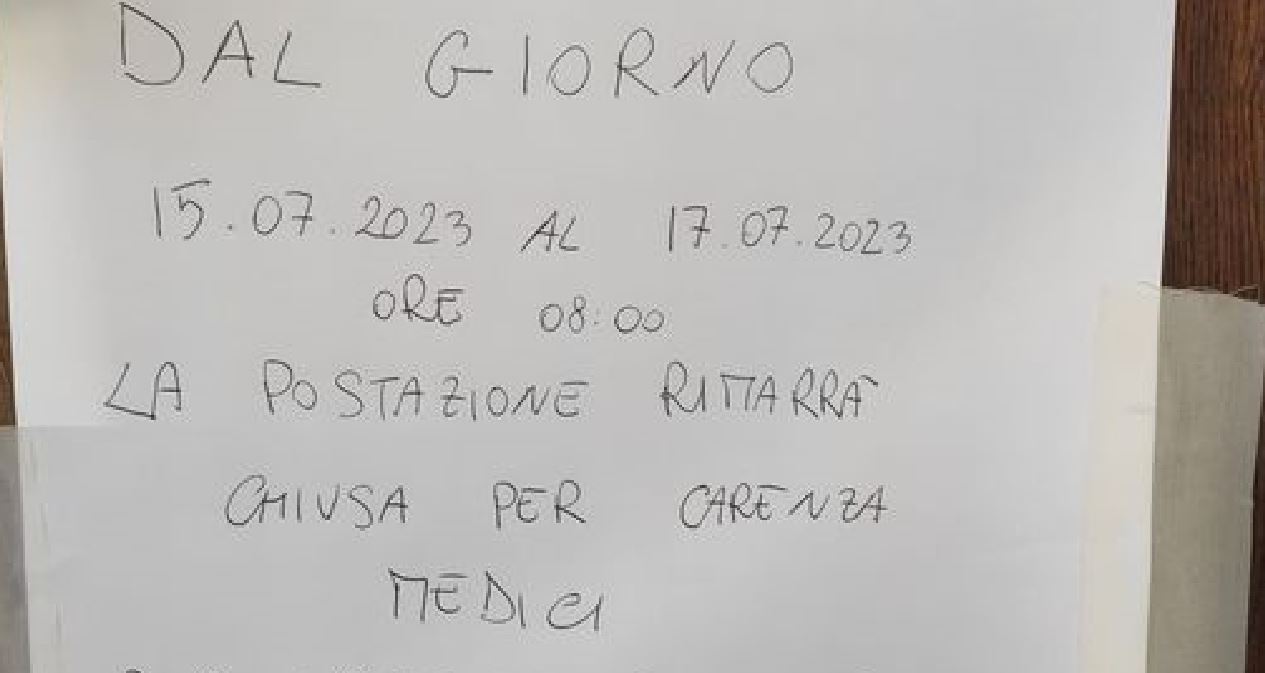 DAL GIORNO
15.07.2023 AL 17.07.2023
ORE 08:00
LA POSTAZIONE RIMARRÀ
CHIUSA PER CARENZA
MEDICI